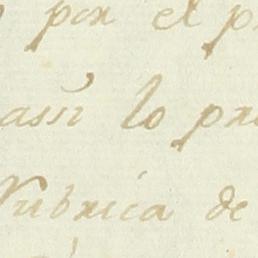 por el p
assi lo pr
Rubrica de